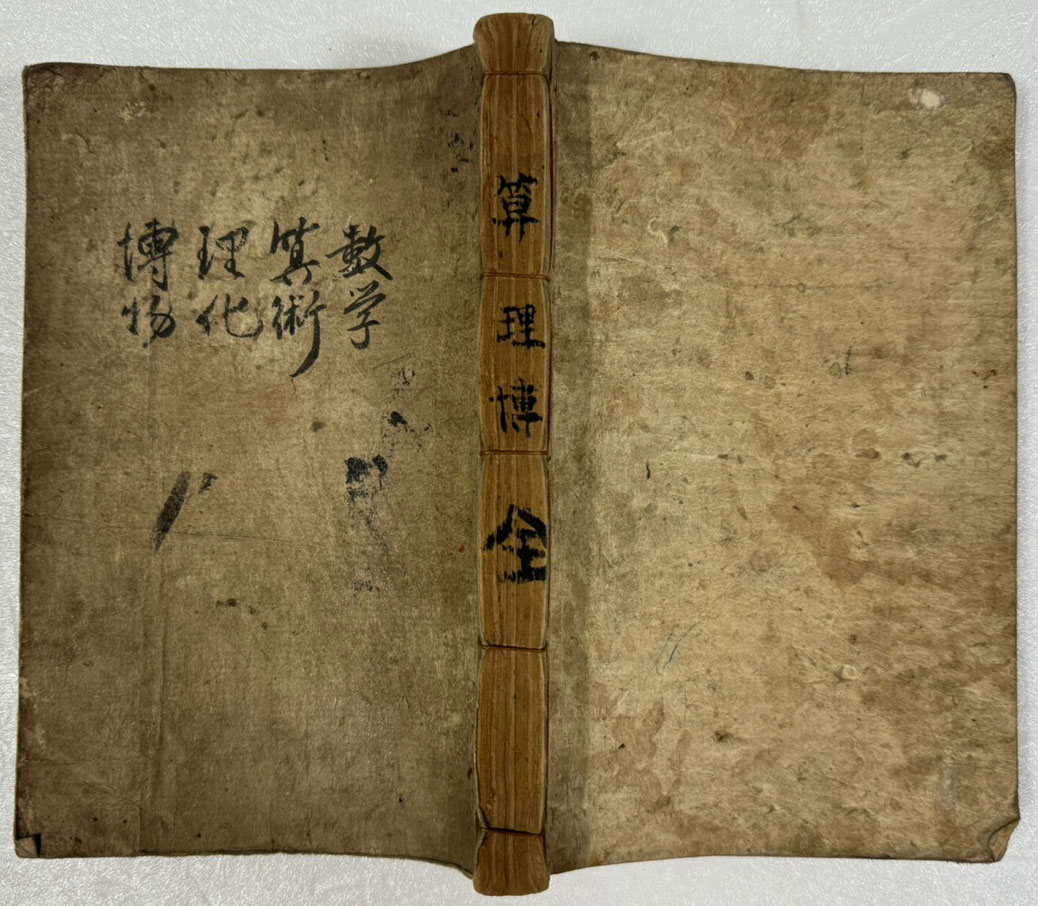 数学
算術
理化
博物
算理博 全